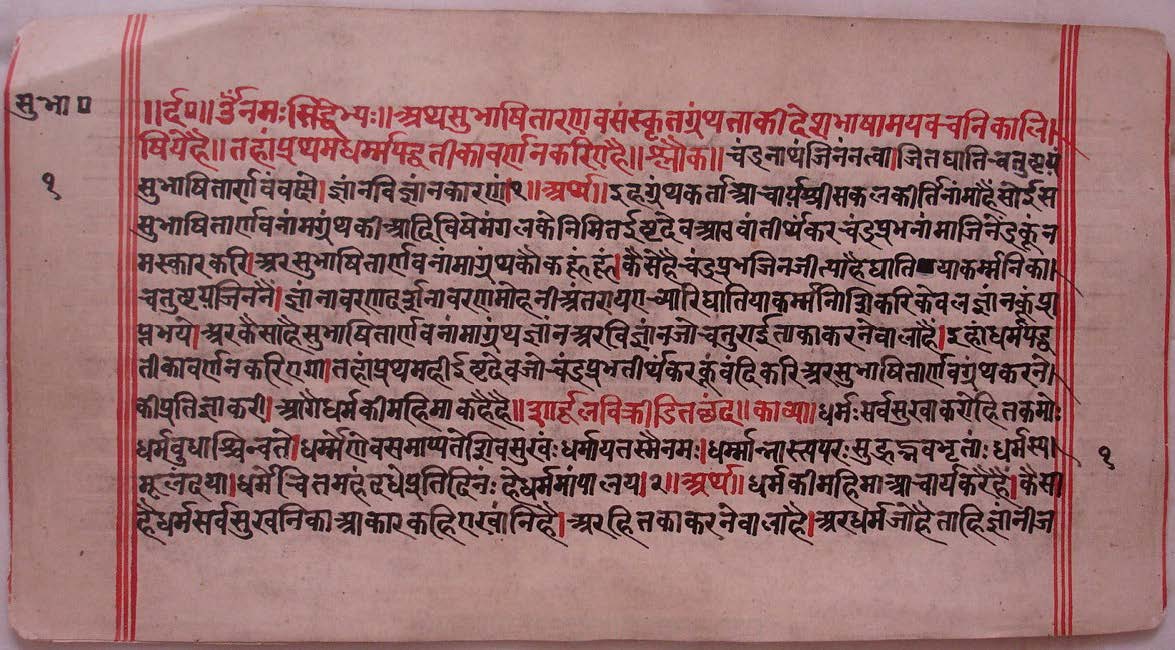 सुभा०
॥र्द०॥ ॐ नमः सिद्धेभ्यः॥ अथ सुभाषितार्णव संस्कृत ग्रंथ ताकी देश भाषामय वचनिका लि।
षियेहै॥ तहां प्रथम धर्म्मपद्धतीका वर्णन करिएहै॥ श्लोक॥ चंद्रनाथं जिनं नत्वा। जितघाति चतुष्टयं
१
सुभाषितार्णवं वक्ष्ये। ज्ञांनविज्ञांनकारणं।१॥ अर्थ॥ इह ग्रंथकर्ता आचार्य श्रीसकलकीर्ति नांमा है सो ईस
सुभाषितार्णव नांम ग्रंथ की आदि विषें मंगल कै निमित्त ईष्टदेव आठवां तीर्थंकर चंद्रप्रभ नांमा जिनेंद्र कूं न
मस्कार करि। अर सुभाषितार्णव नांमा ग्रंथ कौ कहूं हूं। कैसे है चंद्रप्रभ जिन जीत्या है घातियाकर्म्मनिका।
चतुष्टय जिननै। ज्ञांनावरण दर्शनावरण मोहनी अंतराय ए च्यारि घातियाकर्म्म नाशि करि केवलज्ञांन कूं प्रा
प्त भये। अर कैसा है सुभाषितार्णव नांमा ग्रंथ ज्ञांन अर विज्ञांन जो चतुराई ताका करनेवाला है। इहां धर्मपद्ध
तीका वर्णन करिएगा। तहां प्रथमही ईष्टदेव जो चंद्रप्रभ तीर्थंकर कूं वंदि करि अर सुभाषितार्णव ग्रंथ करने।
की प्रतिज्ञा करी। आगै धर्म की महिमा कहै है॥ शार्दूलविक्रीडित छंद॥ काव्य॥ धर्मः सर्वसुखाकरो हितकमो।
धर्म बुधाश्चिन्वते। धर्मेणैव समाप्यते शिवसुखं धर्माय तस्मै नमः। धर्म्मान्नास्त्यपरः सुहृद्भवभृतां धर्मस्य।
१
मूलं दया। धर्मे चित्तमहं दधे प्रतिदिनं हे धर्म मां पालय।२॥ अर्थ॥ धर्म की महिमा आचार्य करै है। कैसा
है धर्म सर्वसुखनिका आकार कहिए खांनि है। अर हित का करनेवाला है। अर धर्म जो है ताहि ज्ञांनी ज